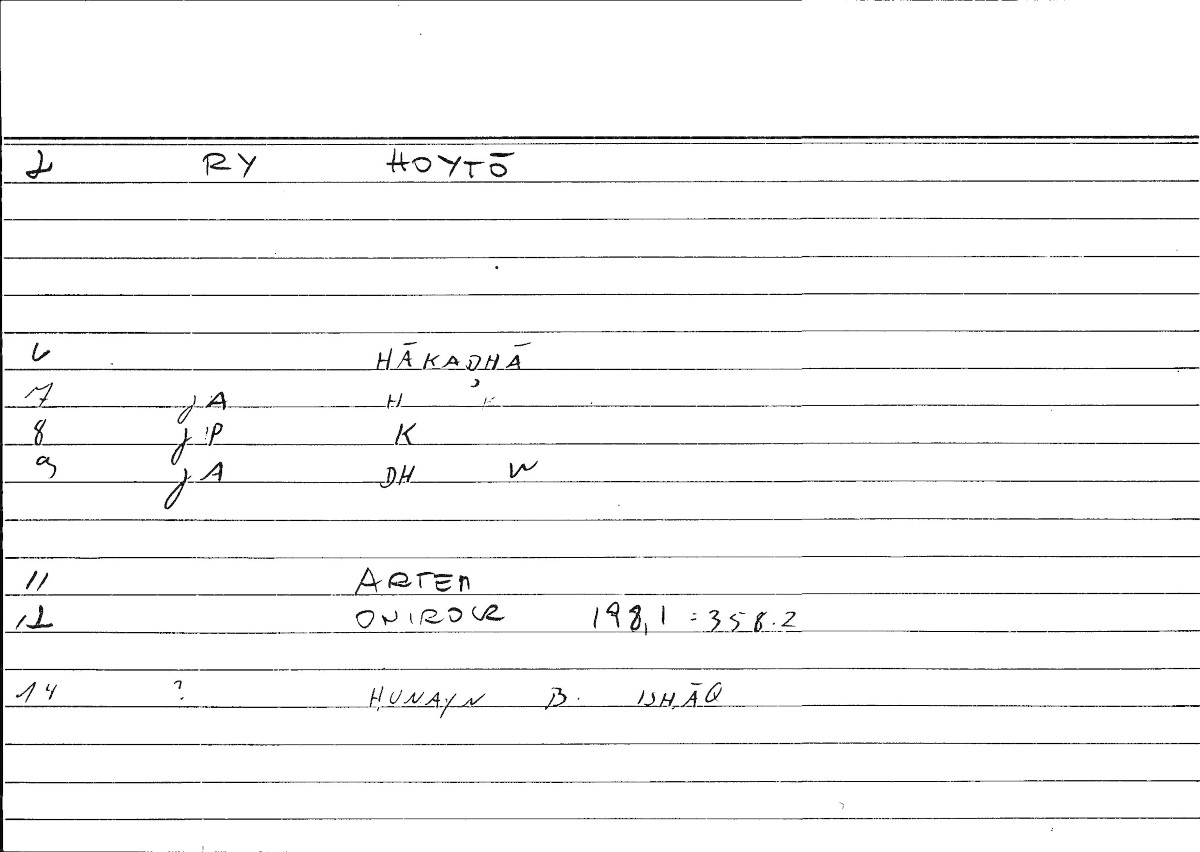 2 RY HOYTŌ
6 HĀKADHĀ
7 jA H K
8 jP K
9 jA DH W
11 ARTEM
12 ONIROCR 198,1 = 358.2
14 ? ḤUNAYN B. ISḤĀQ